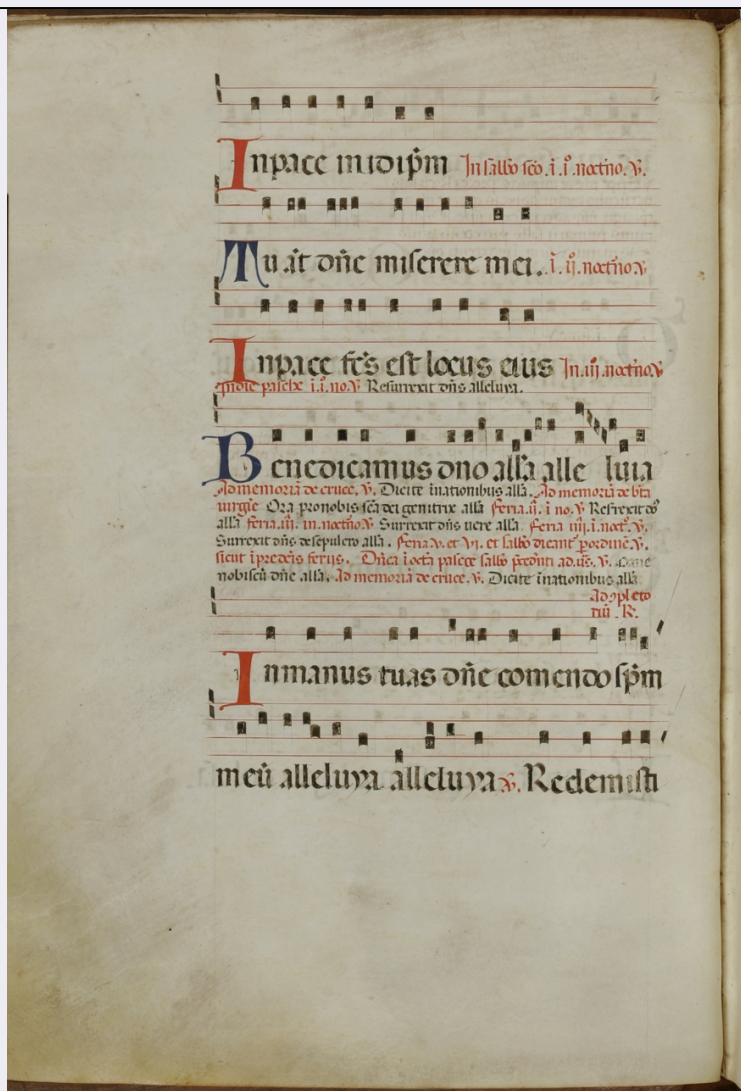 Inpace midip̄m In sabb̄o sc̄o .ī .i͛ .noct̄no. ℣.
Tu aūt dn̄e miserere mei. .ī .ij͛. noct̄no ℣
Inpace fc̄s est locus eius In .iij. noct̄no. ℣
pasche .ī .i͛. no. ℣ Resurrexit dn̄s alleluya.
Benedicamus dn̄o all̄a alle luia
Ad memoriā de cruce. ℣. Dicite īnationibus all̄a. Ad memoriā de bt̄a
uirgīe Ora pronobis sc̄a dei genitrix all̄a feria .ij. ī no. ℣
all̄a feria .iij. in. noct̄no ℣ Surrexit dn̄s uere all̄a feria iiij. ī. noct͛. ℣.
Surrexit dn̄s desepulcro all̄a. feria v. et vj. et sabb̄o dicant̄ ꝑordinē ℣.
sicut īpredc̄is ferijs. Dn̄ica ī octā pasce sabb̄o ad. us̄. ℣.
nobiscū dn̄e all̄a. Ad memoriā de cruce. ℣. Dicite īnationibus all̄a
Ad ɔpleto
riū ℟.
Inmanus tuas dn̄e comendo sp̄m
meū alleluya alleluya ℣. Redemisti